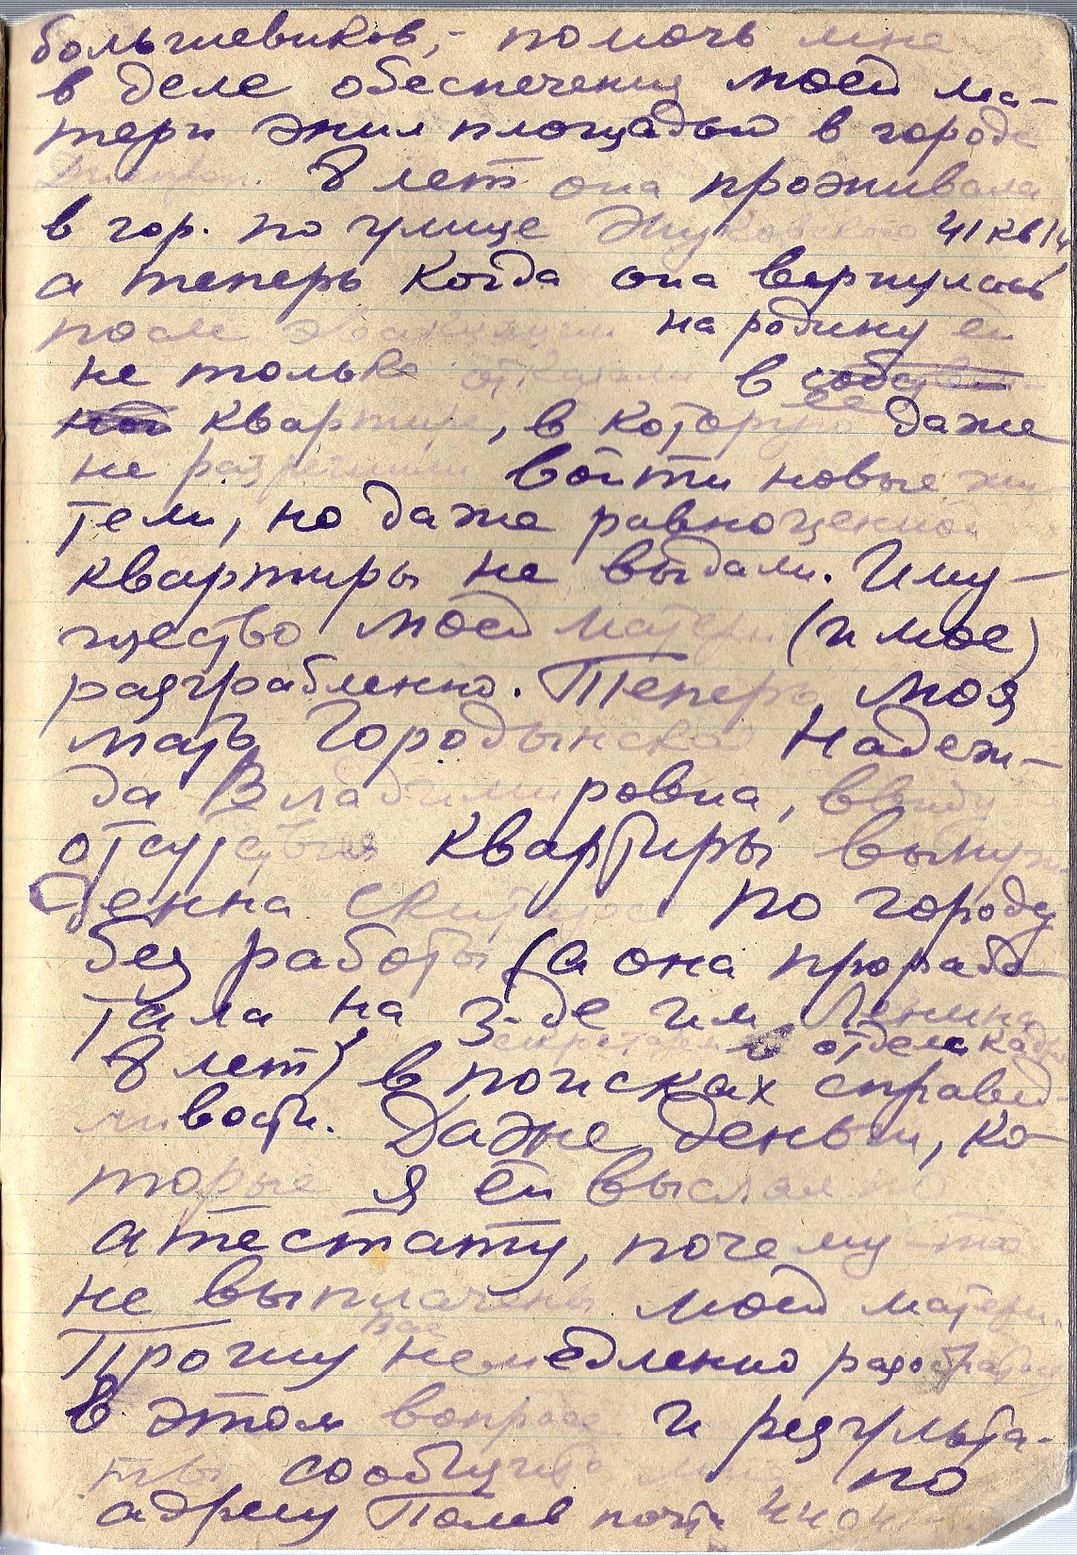 большевиков, - помочь мне
в деле обеспечения моей ма-
тери жил площадью в городе
Днепроп. 8 лет она проживала
в гор. по улице Жуковского 41 кв 14,
а теперь когда она вернулась
после эвакуации на родину ей
не только отказали в собствен-
ной квартире, в которую ее даже
не разрешили войти новые жи
тели, но даже равноценной
квартиры не выдали. Иму-
щество моей матери (и мое)
разграбленно. Теперь моя
мать Городынская Надеж-
да Владимировна, ввиду
отсутствия квартиры вынуж
денна скитаться по городу
без работы (а она прорабо-
тала на з-де им Ленина
секретарем отдела кадров
8 лет) в поисках справед-
ливости. Даже деньги, ко-
торые я ей выслал по
атестату, почему-то
не выплачены моей матери.
Прошу вас немедленно разобраться
в этом вопросе и результа-
ты сообщить мне по
адресу Полев почта